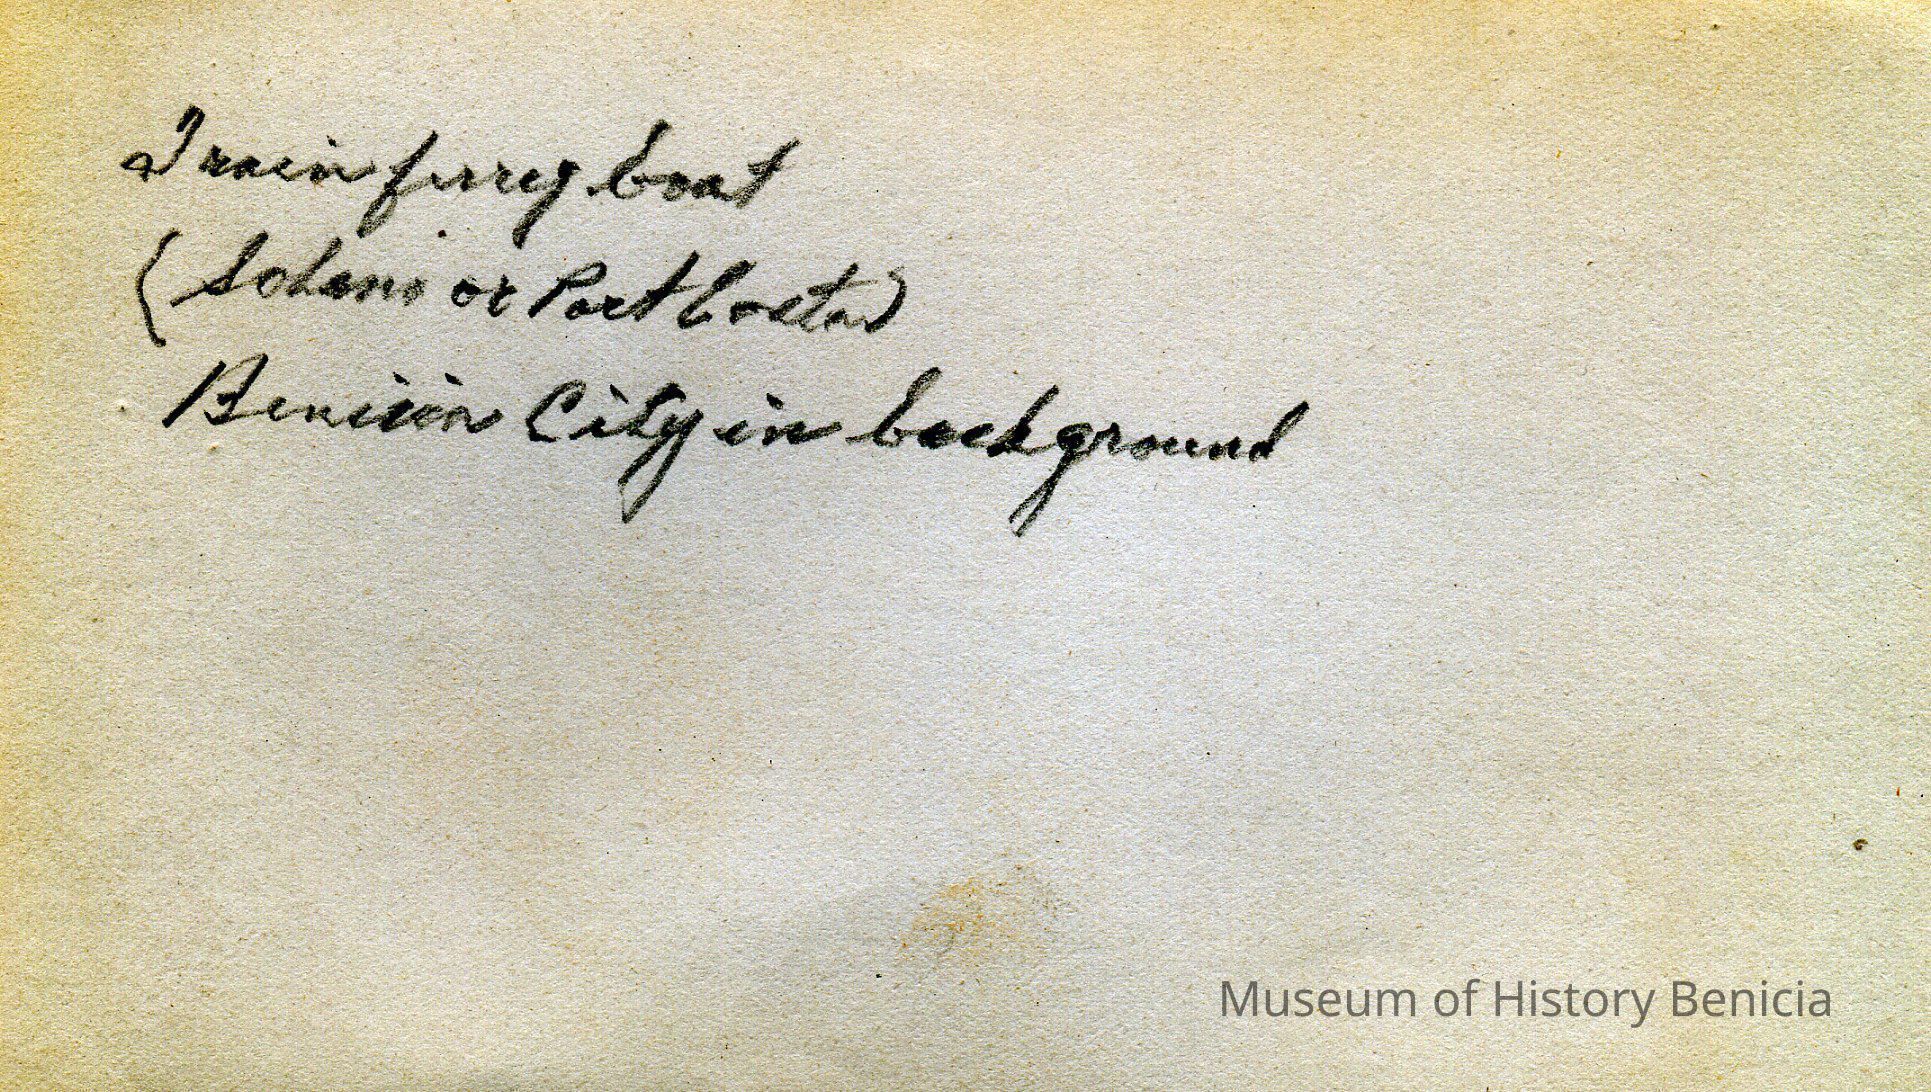 Train ferry boat
(Solano or Port Costa)
Benicia City in background
Museum of History Benicia